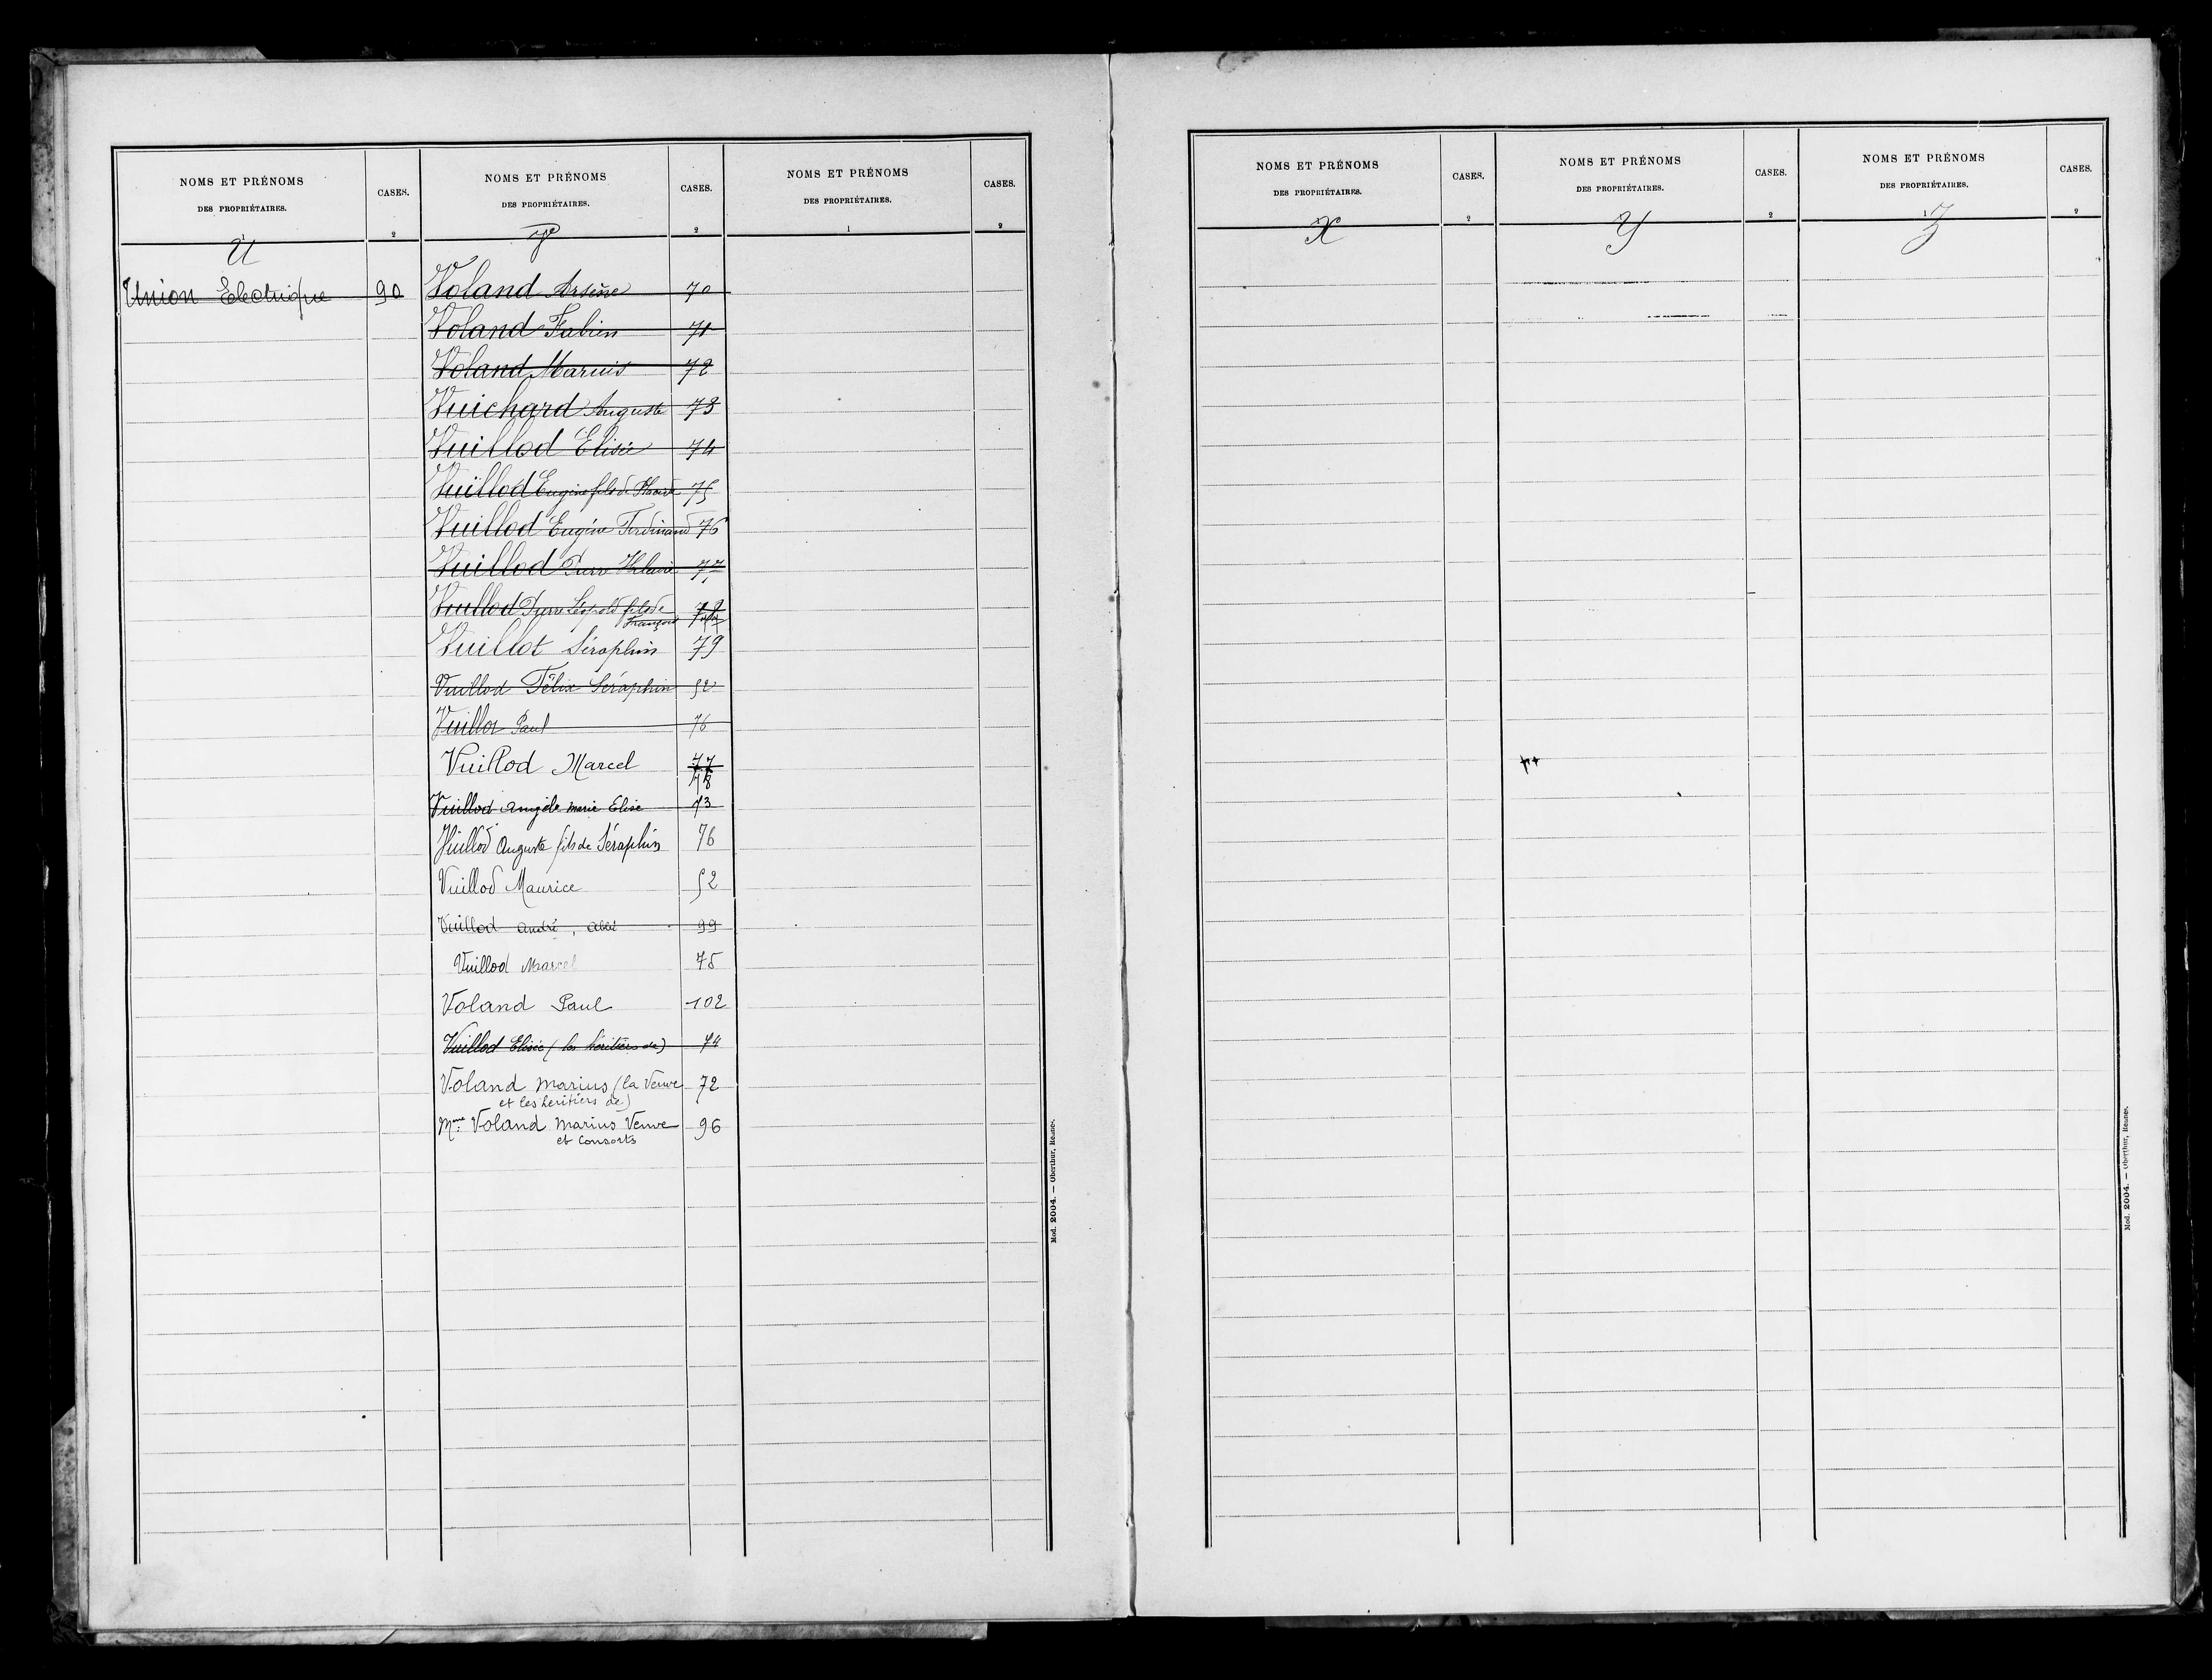 NOMS ET PRÉNOMS
DES PROPRIÉTAIRES.
CASES.
1
2
U
Union Electrique 90
NOMS ET PRÉNOMS
DES PROPRIÉTAIRES.
CASES.
2
V
Voland Arsène 70
Voland Fabien 71
Voland Marius 72
Vuichard Auguste 73
Vuillod Elisée 74
Vuillod Eugène fils de 75
Vuillod Eugène Ferdinand 76
Vuillod Pierre Hilaire 77
Vuillod Pierre Léopold fils de
François 78
Vuillot Séraphin 79
Vuillod Félix Séraphin 52
Vuillod Paul 76
Vuillod Marcel 77
78
Vuillod Angèle Marie Elise 73
Vuillod Auguste fils de Séraphin 76
Vuillod Maurice 52
Vuillod André, Abbé 99
Vuillod Marcel 75
Voland Paul 102
Vuillod Elisée (les héritiers de) 74
Voland Marius (la Veuve 72
et les heritiers de)
Mme Voland Marius Veuve 96
et Consorts
NOMS ET PRÉNOMS
DES PROPRIÉTAIRES.
CASES.
1
2
Mod. 2004. — Oberthur, Rennes.
NOMS ET PRÉNOMS
DES PROPRIÉTAIRES.
CASES.
2
X
NOMS ET PRÉNOMS
DES PROPRIÉTAIRES.
CASES.
2
Y
NOMS ET PRÉNOMS
DES PROPRIÉTAIRES.
CASES.
1
2
Z
Mod. 2004. — Oberthur, Rennes.